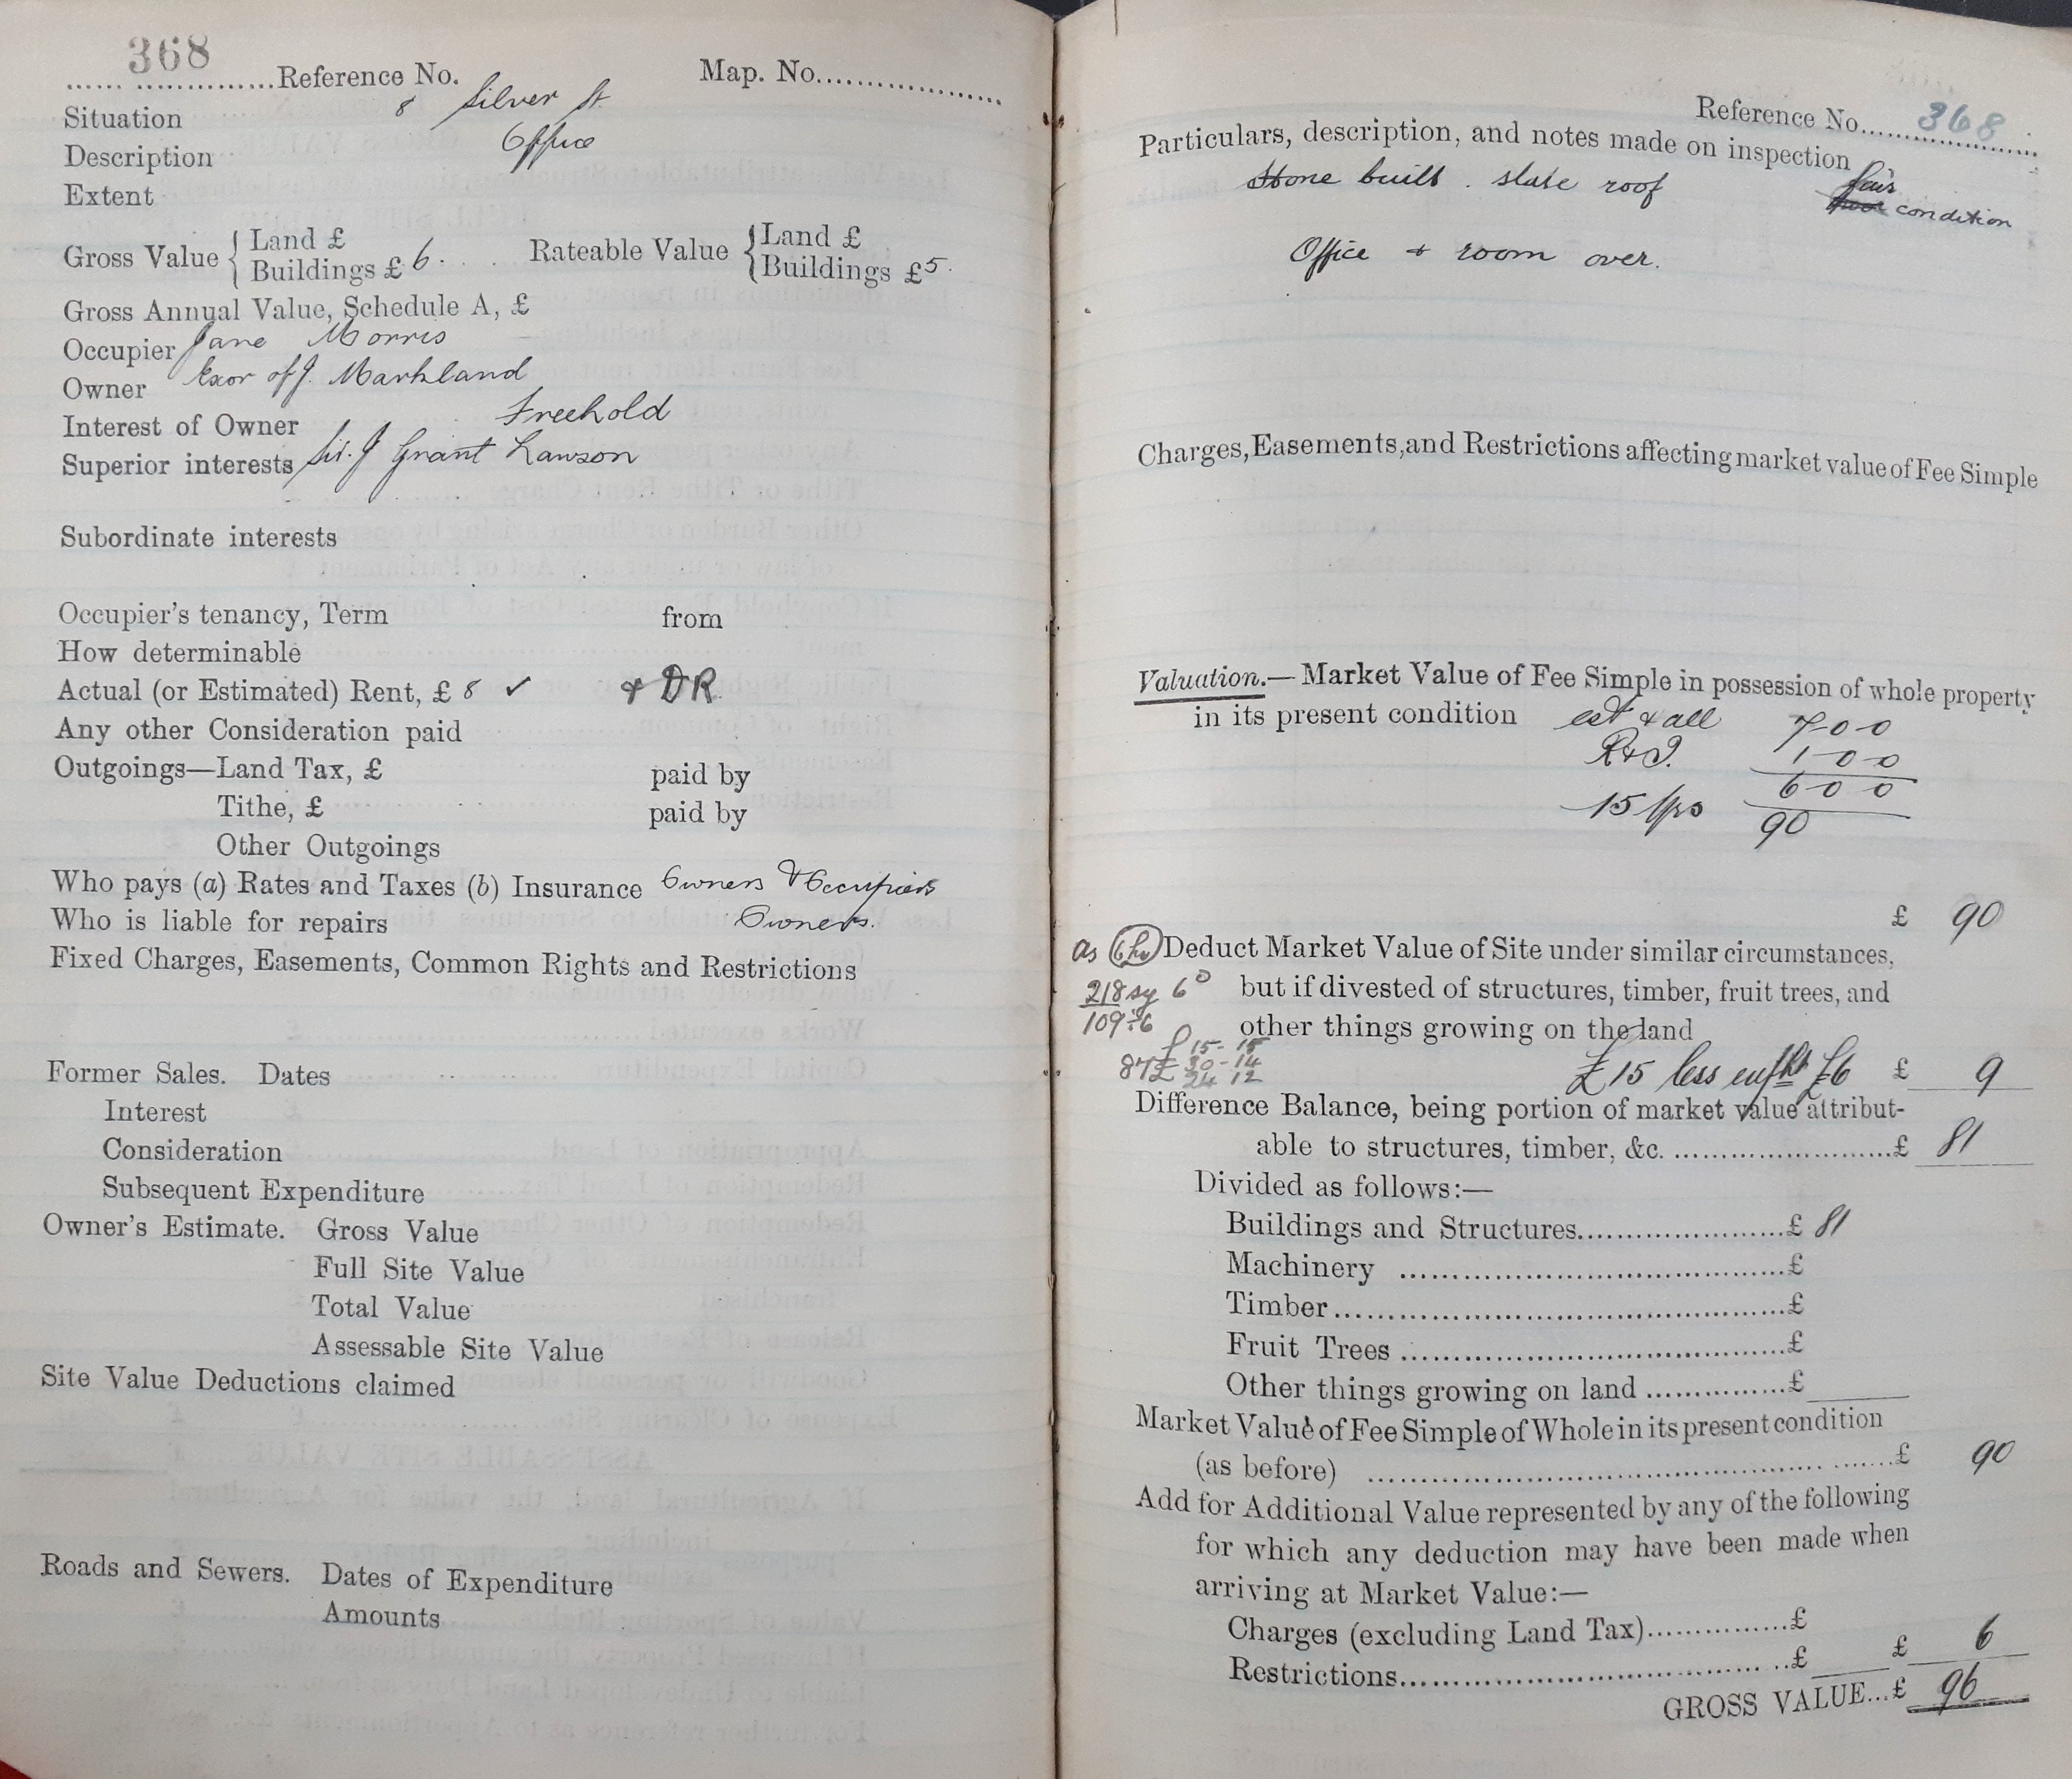 368
...... ...............Reference No.
Map. No....................
Situation 8 Silver St
Description Office
Extent
Gross Value { Land £
Buildings £ 6.
Rateable Value { Land £
Buildings £5.
Gross Annual Value, Schedule A, £
Occupier Jane Morris
Owner Exor of J. Markland
Interest of Owner Freehold
Superior interests Sir. J Grant Lawson
Subordinate interests
Occupier's tenancy, Term from
How determinable
Actual (or Estimated) Rent, £ 8 ✓ + DR
Any other Consideration paid
Outgoings—Land Tax, £ paid by
Tithe, £ paid by
Other Outgoings
Who pays (a) Rates and Taxes (b) Insurance Owners & Occupiers
Who is liable for repairs Owners.
Fixed Charges, Easements, Common Rights and Restrictions
Former Sales. Dates
Interest
Consideration
Subsequent Expenditure
Owner's Estimate. Gross Value
Full Site Value
Total Value
Assessable Site Value
Site Value Deductions claimed
Roads and Sewers. Dates of Expenditure
Amounts
Reference No. 368
Particulars, description, and notes made on inspection
Stone built. slate roof fair
condition
Office + room over.
Charges, Easements, and Restrictions affecting market value of Fee Simple
Valuation.—Market Value of Fee Simple in possession of whole property
in its present condition est & all 7-0-0
R+I. 1-0-0
6 0 0
15 yrs 90
£ 90
as Deduct Market Value of Site under similar circumstances,
218 sy 6D but if divested of structures, timber, fruit trees, and
109:6 other things growing on the land
£ 15-15
87£ 30-14
24 12
£15 less enfht £6 £ 9
Difference Balance, being portion of market value attribut-
able to structures, timber, &c. ..........................£ 81
Divided as follows:—
Buildings and Structures.......................£ 81
Machinery ..........................................£
Timber.................................................£
Fruit Trees ..........................................£
Other things growing on land ...............£
Market Value of Fee Simple of Whole in its present condition
(as before) ..........................................................£ 90
Add for Additional Value represented by any of the following
for which any deduction may have been made when
arriving at Market Value:—
Charges (excluding Land Tax)...............£
Restrictions..........................................£ £ 6
GROSS VALUE...£ 96